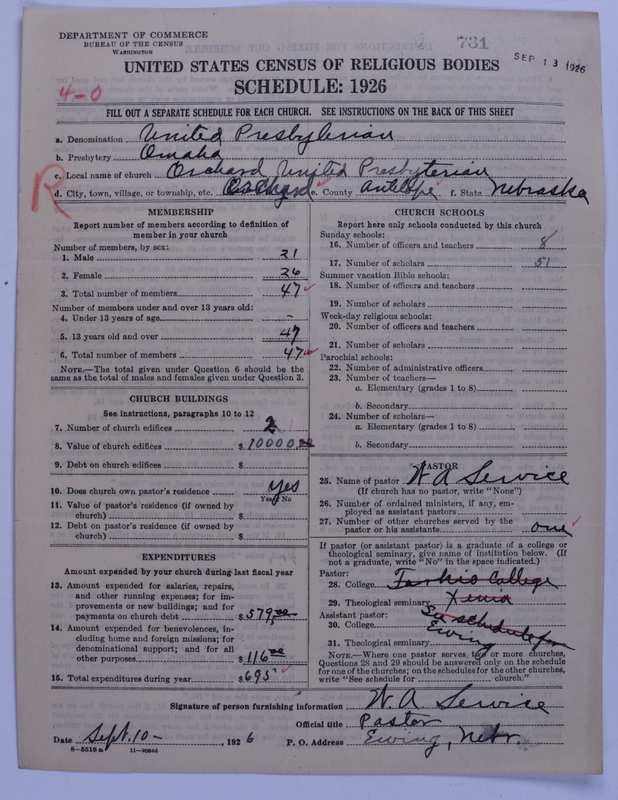 DEPARTMENT OF COMMERCE
BUREAU OF THE CENSUS
WASHINGTON
731
SEP 13 1926
UNITED STATES CENSUS OF RELIGIOUS BODIES
SCHEDULE: 1926
4-0
FILL OUT A SEPARATE SCHEDULE FOR EACH CHURCH. SEE INSTRUCTIONS ON THE BACK OF THIS SHEET
a. Denomination United Presbyterian
b. Presbytery Omaha
c. Local name of church Orchard United Presbyterian
R
d. City, town, village, or township, etc. Orchard e. County Antelope f. State Nebraska
MEMBERSHIP
Report number of members according to definition of
member in your church
Number of members, by sex:
1. Male 21
2. Female 26
3. Total number of members 47
Number of members under and over 13 years old:
4. Under 13 years of age -
5. 13 years old and over 47
6. Total number of members 47
NOTE.—The total given under Question 6 should be
same as the total of males and females given under Question 3.
CHURCH BUILDINGS
See instructions, paragraphs 10 to 12
7. Number of church edifices 2 1
8. Value of church edifices $ 10000.00
9. Debt on church edifices $
10. Does church own pastor's residence yes
Yes or No
11. Value of pastor's residence (if owned by
church) $
12. Debt on pastor's residence (if owned by
church) $
EXPENDITURES
Amount expended by your church during last fiscal year
13. Amount expended for salaries, repairs,
and other running expenses; for im-
provements or new buildings; and for
payments on church debt $ 579.00
14. Amount expended for benevolences, in-
cluding home and foreign missions; for
denominational support; and for all
other purposes $ 116.00
15. Total expenditures during year $ 695
CHURCH SCHOOLS
Report here only schools conducted by this church
Sunday schools:
16. Number of officers and teachers 8
17. Number of scholars 51
Summer vacation Bible schools:
18. Number of officers and teachers
19. Number of scholars
Week-day religious schools:
20. Number of officers and teachers
21. Number of scholars
Parochial schools:
22. Number of administrative officers
23. Number of teachers—
a. Elementary (grades 1 to 8)
b. Secondary
24. Number of scholars—
a. Elementary (grades 1 to 8)
b. Secondary
PASTOR
25. Name of pastor W A Service
(If church has no pastor, write "None")
26. Number of ordained ministers, if any, em-
ployed as assistant pastors
27. Number of other churches served by the
pastor or his assistants one
If pastor (or assistant pastor) is a graduate of a college or
theological seminary, give name of institution below. (If
not a graduate, write "No" in the space indicated.)
Pastor:
28. College Tarkio College
29. Theological seminary Xenia
Assistant pastor:
30. College See schedule for
Ewing
31. Theological seminary
NOTE.—Where one pastor serves two or more churches,
Questions 28 and 29 should be answered only on the schedule
for one of the churches; on the schedules for the other churches,
write "See schedule for church."
Signature of person furnishing information W. A. Service
Official title Pastor
Date Sept. 10 -, 1926 P. O. Address Ewing, Nebr.
8-5518 a 11-9534d